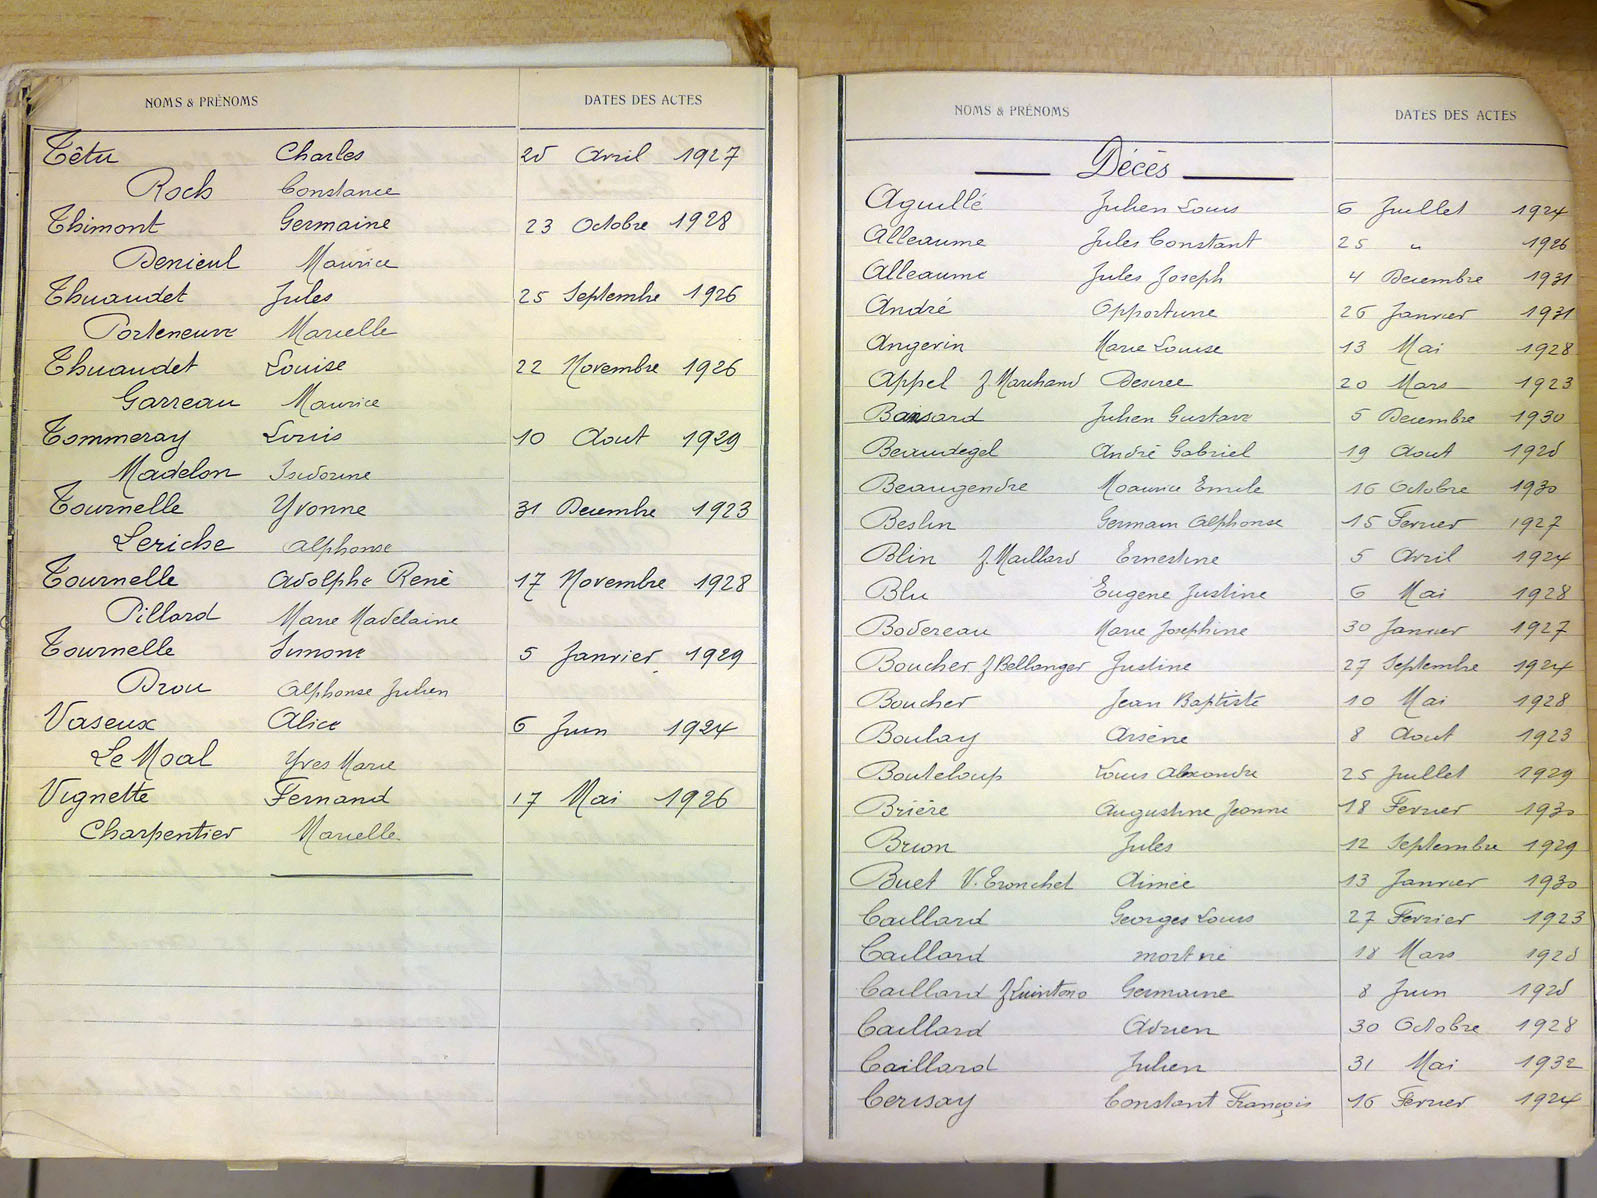 NOMS & PRÉNOMS DATES DES ACTES
Têtu Charles 25 Avril 1927
Rock Constance
Thimont Germaine 23 Octobre 1928
Denieul Maurice
Thuaudet Jules 25 Septembre 1926
Porteneuve Marcelle
Thuaudet Louise 22 Novembre 1926
Garreau Maurice
Tommeray Louis 10 Aout 1929
Madelon Isidorine
Tournelle Yvonne 31 Decembre 1923
Leriche Alphonse
Tournelle Adolphe René 17 Novembre 1928
Pillard Marie Madelaine
Tournelle Simone 5 Janvier 1929
Drou Alphonse Julien
Vaseux Alice 6 Juin 1924
Le Moal Yves Marie
Vignette Fernand 17 Mai 1926
Charpentier Marcelle
NOMS & PRÉNOMS DATES DES ACTES
Décès
Aguillé Julien Louis 6 Juillet 1924
Alleaume Jules Constant 25 " 1926
Alleaume Jules Joseph 4 Decembre 1931
André Opportune 26 Janvier 1931
Angevin Marie Louise 13 Mai 1928
Appel f Marchand Desiree 20 Mars 1923
Baisard Julien Gustave 5 Decembre 1930
Beaudegel André Gabriel 19 Aout 1925
Beaugendre Maurice Emile 16 Octobre 1930
Beslin Germain Alphonse 15 Fevrier 1927
Blin f. Maillard Ernestine 5 Avril 1924
Blu Eugene Justine 6 Mai 1928
Bodereau Marie Josephine 30 Janvier 1927
Boucher f Bellanger Justine 27 Septembre 1924
Boucher Jean Baptiste 10 Mai 1928
Boulay Arsène 8 Aout 1923
Bouteloup Louis Alexandre 25 Juillet 1929
Brière Augustine Jeanne 18 Fevrier 1930
Brion Jules 12 Septembre 1929
Buet V. Tronchet Aimée 13 Janvier 1930
Caillard Georges Louis 27 Fevrier 1923
Caillard mort né 18 Mars 1925
Caillard f Germaine 8 Juin 1925
Caillard Adrien 30 Octobre 1928
Caillard Julien 31 Mai 1932
Cerisay Constant François 16 Fevrier 1924